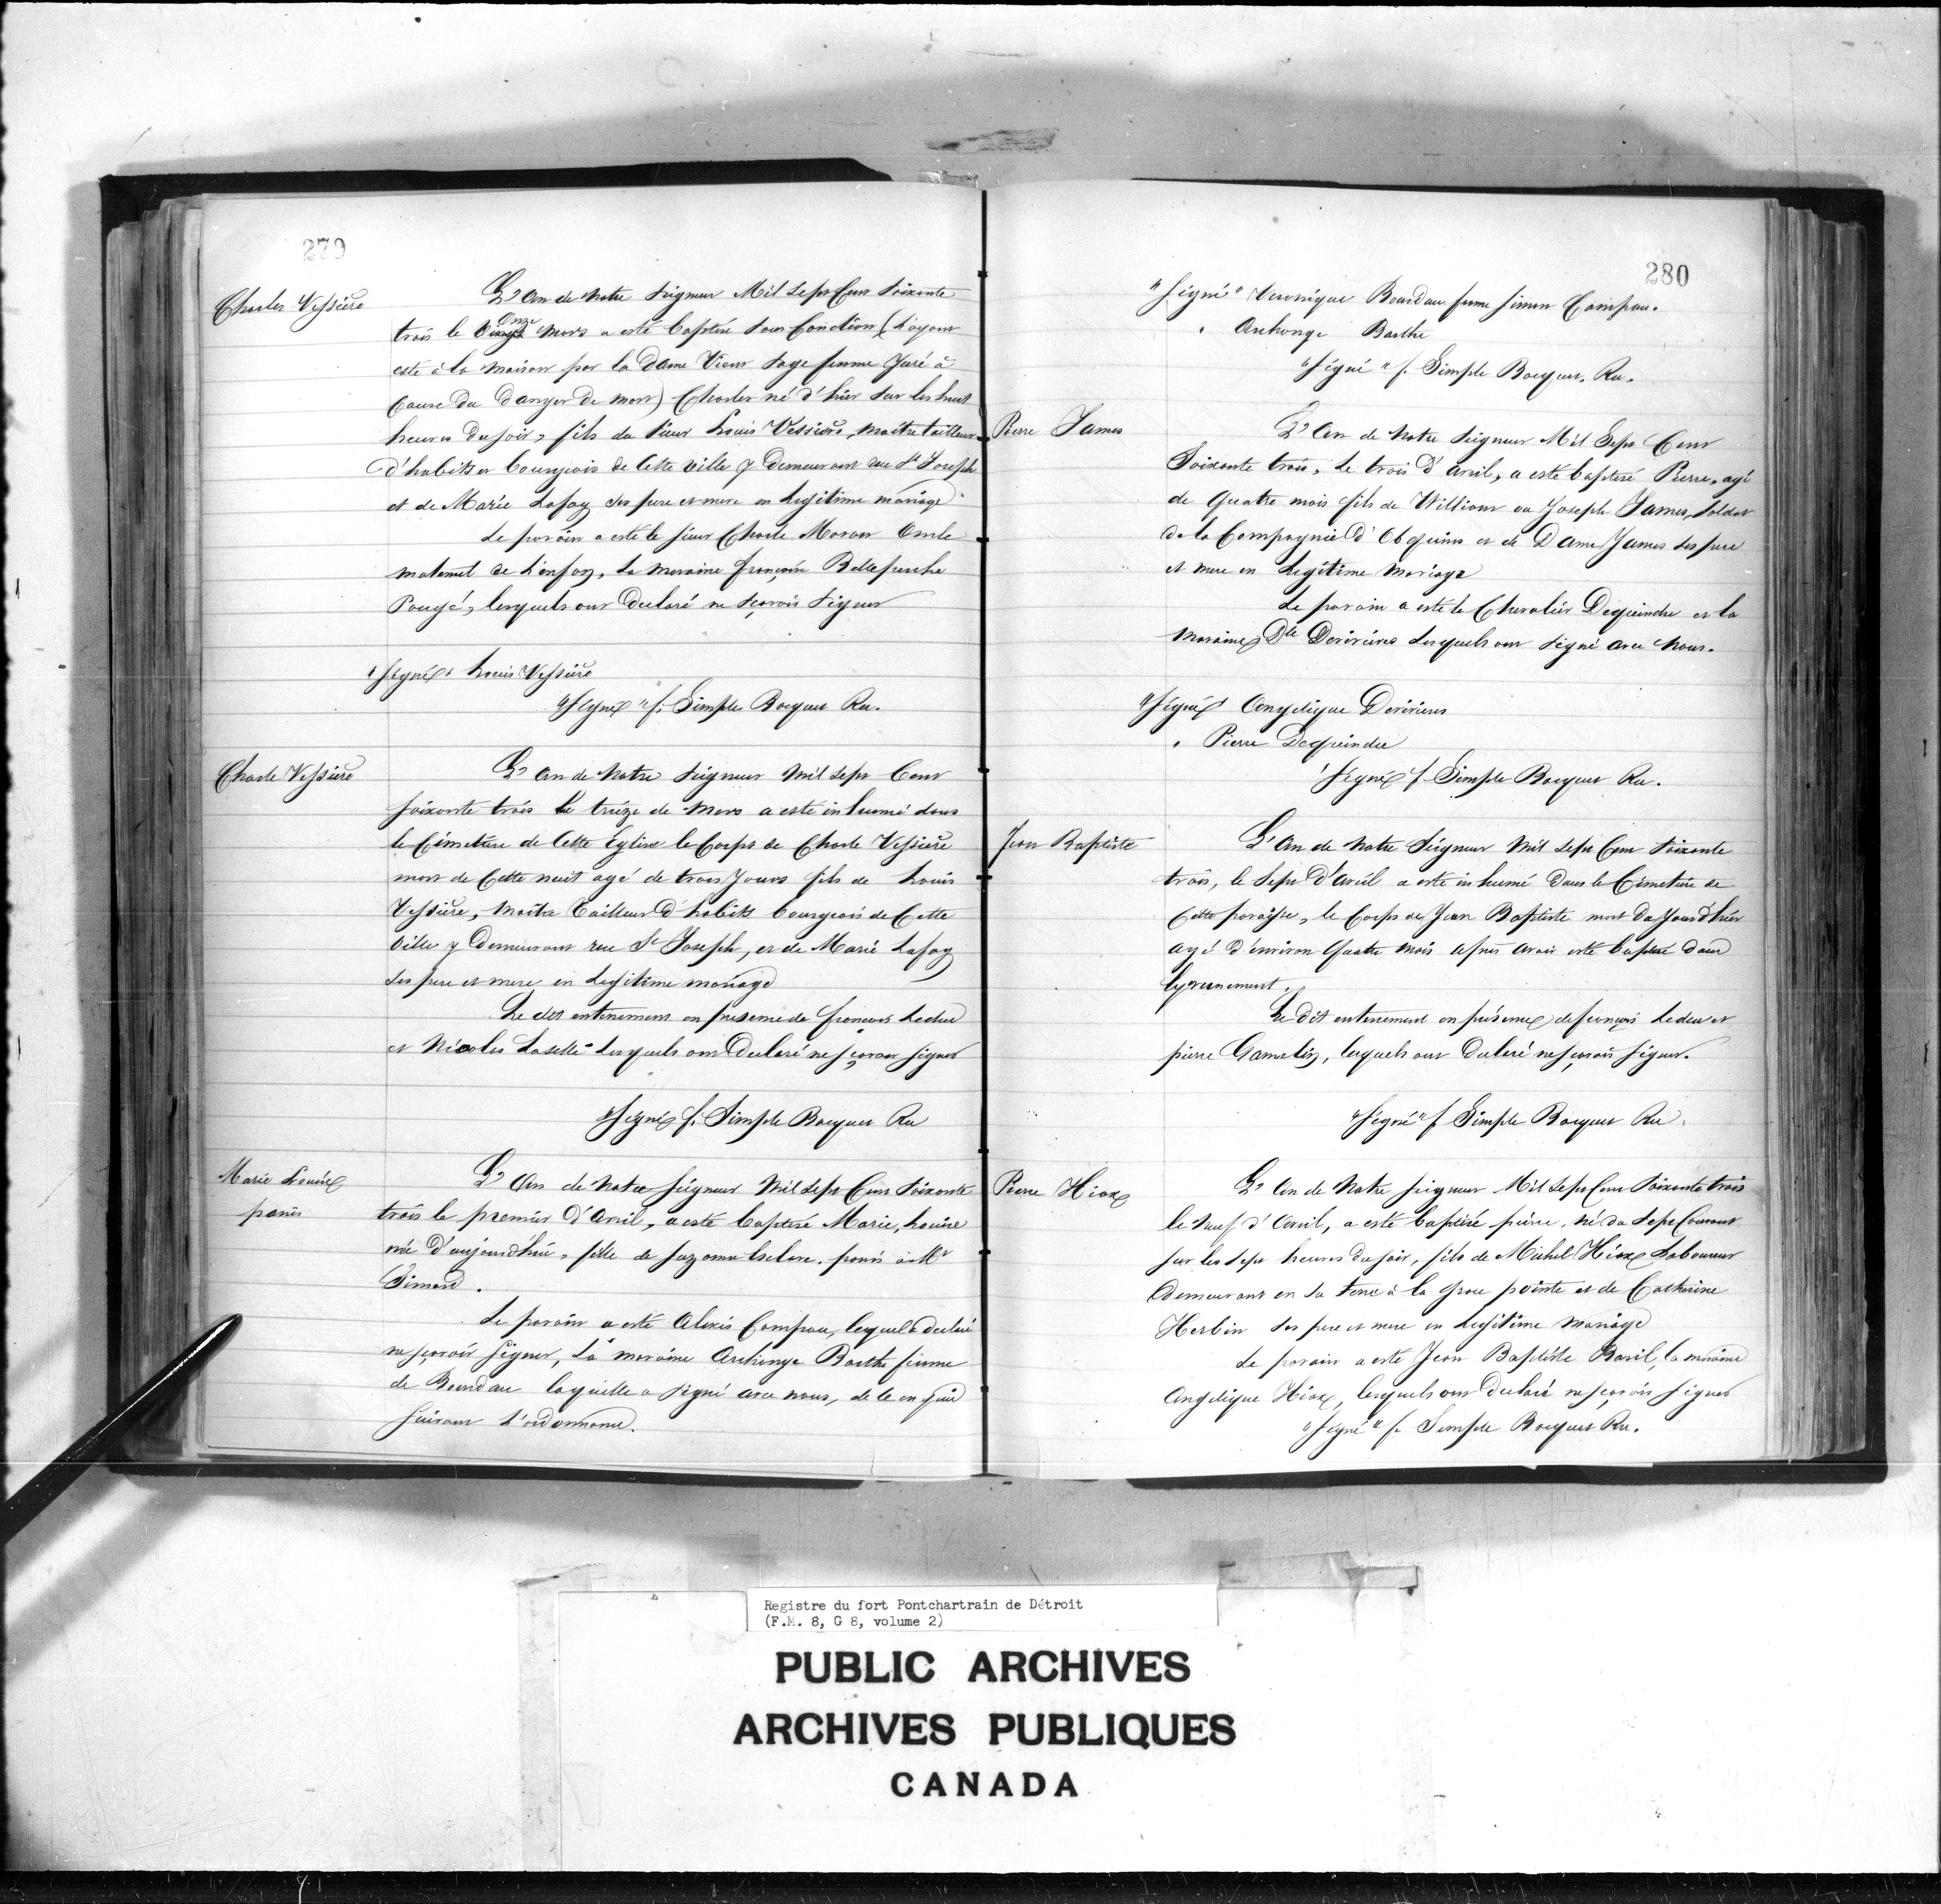 279
Charles Vessière
L'An de Notre Seigneur Mil Sept Cent Soixante
trois le Onze Mars a esté baptisé sous Condition (L'ayant
esté à la maison par la Dame Vieux Sage femme Juré à
Cause du Danger de mort) Charles né d'hier sur les huit
heures du soir, fils du Sieur Louis Vessière, maître tailleur
d'habits et bourgeois de Cette ville y Demeurant rue St Joseph
et de Marie Lafoy ses pere et mere en Legitime mariage
Le parain a esté le sieur Charle Moran Oncle
maternel de L'enfan, La maraine françoise Belleperche
Pougé, lesquels ont Declaré ne sçavoir Signer
"Signé" Louis Vessière
"Signé" f. Simple Bocquet Rec.
Charle Vessière
L'an de Notre Seigneur Mil Sept Cent
soixante trois le treize de Mars a esté inhumé dans
le Cimetière de Cette Eglise le Corps de Charle Vessière
mort de Cette nuit agé de trois Jours fils de Louis
Vessière, Maître Tailleur D'habits bourgeois de Cette
Ville y Demeurant rue St Joseph, et de Marie Lafoy
ses pere et mere en Legitime mariage
Le dit enterrement en presence de françois Leduc
et Nicolas Laselle Lesquels ont Declaré ne sçavoir signer
"Signé f. Simple Bocquet Rec
Marie Louise
panis
L'An de Notre Seigneur Mil Sept Cent Soixante
trois le premier D'Avril, a esté baptisé Marie, Louise
née D'aujourdhui, fille de Suzanne Esclave. panis à Mr
Simard.
Le parain a esté Alexis Campau, lequel a declaré
ne sçavoir Signer, La maraine Archange Barthe femme
de Bondau laquelle a signé avec nous, de ce enquis
suivant L'ordonnance.
280
"Signé" Veronique Beaudau femme Simon Campau.
" Archange Barthe
"Signé" f. Simple Bocquet. Rec.
Pierre James
L'An de Notre Seigneur Mil Sept Cent
Soixante trois, Le trois d'Avril, a esté baptisé Pierre, agé
de Quatre mois fils de William ou Joseph James, Soldat
de la Compagnie D' et de Dame James ses pere
et mere en Legitime Mariage
Le parain a esté le Chevalier Dequindre et la
Maraine Dlle Derivières Lesquels ont Signé avec Nous.
"Signé" Angelique Derivieres
" Pierre Dequindre
"Signé" f. Simple Bocquet Rec.
Jean Baptiste
L'An de Notre Seigneur Mil Sept Cent Soixante
trois, le Sept D'Avril a esté inhumé Dans le Cimetière de
Cette paroisse, le Corps de Jean Baptiste mort du Jour d'hier
agé d'environ Quatre mois après avoir esté baptisé dans
Le dit enterrement en présence de françois Leduc et
pierre Gamelin, lesquels ont Declaré ne sçavoir signer.
"Signé" f Simple Bocquet Rec.
Pierre Hiax
L'An de Notre Seigneur Mil Sept Cent Soixante trois
le Neuf d'Avril, a esté baptisé pierre, né du Sept Courant
sur les Sept heures du soir, fils de Michel Hiax Laboureur
Demeurant en sa Terre à la Grose pointe et de Catherine
Herbin ses pere et mere en Legitime Mariage
Le parain a esté Jean Baptiste Baril, la maraine
Angelique Hiax, lesquels ont Declaré ne sçavoir signer
"Signé" f. Simple Bocquet Rec.
Registre du fort Pontchartrain de Détroit
(F.M. 8, G 8, volume 2)
PUBLIC ARCHIVES
ARCHIVES PUBLIQUES
CANADA